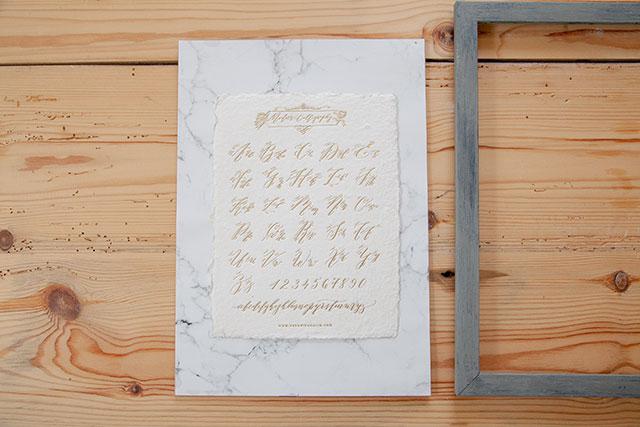 Modern Calligraphy
Aa Bb Cc Dd Ee
Ff Gg Hh Ii Jj
Kk Ll Mm Nn Oo
Pp Qq Rr Ss Tt
Uu Vv Ww Xx Yy
Zz 1234567890
abcdefghijklmnopqrstuvwxyz